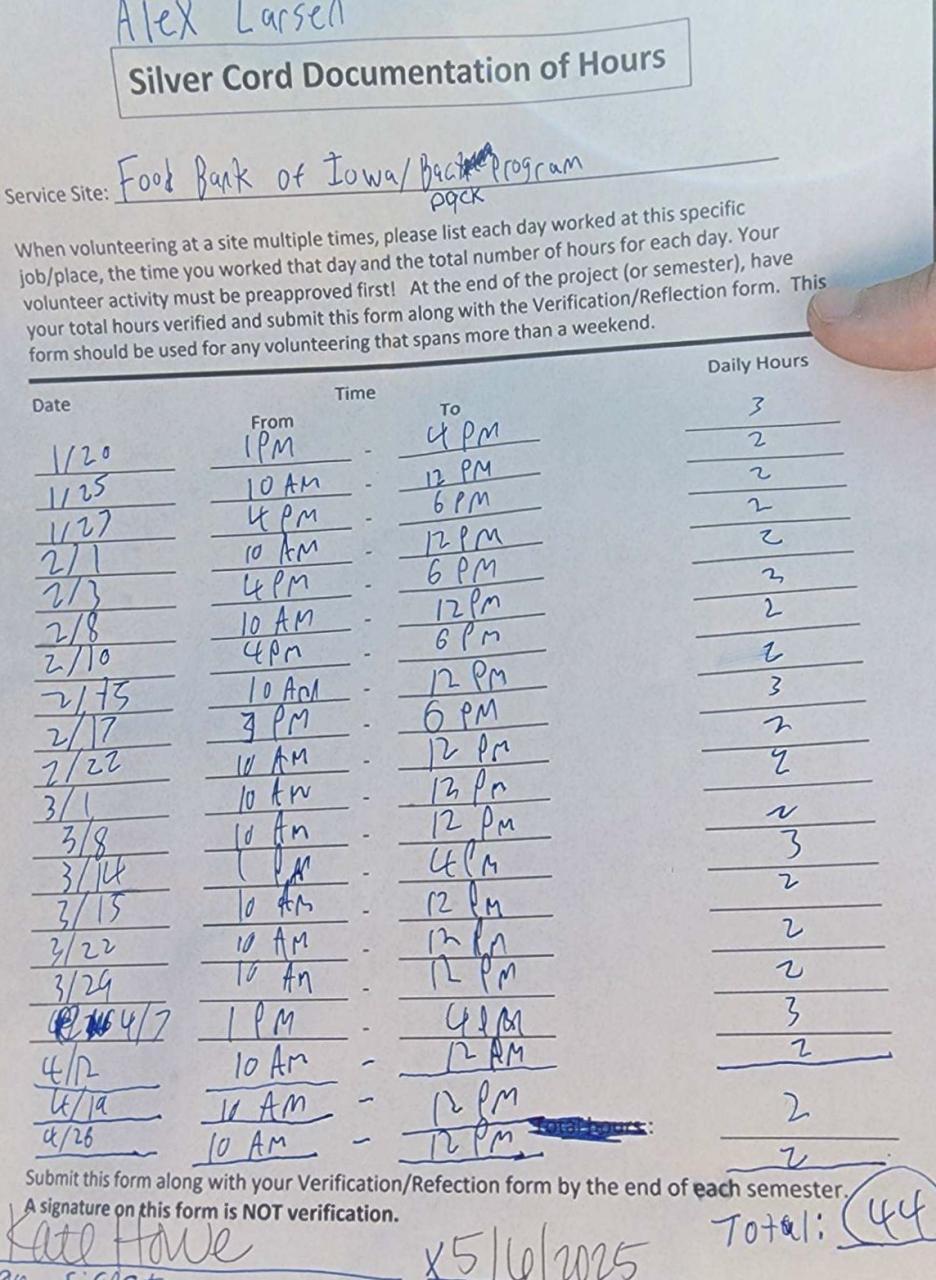 Alex Larsen
Silver Cord Documentation of Hours
Service Site: Food Bank of Iowa/Back Program
pack
When volunteering at a site multiple times, please list each day worked at this specific
job/place, the time you worked that day and the total number of hours for each day. Your
volunteer activity must be preapproved first! At the end of the project (or semester), have
your total hours verified and submit this form along with the Verification/Reflection form. This
form should be used for any volunteering that spans more than a weekend.
Date Time Daily Hours
From To
1/20 1PM - 4 PM 3
1/25 10 AM - 12 PM 2
1/27 4 PM - 6 PM 2
2/1 10 AM - 12 PM 2
2/3 4 PM - 6 PM 2
2/8 10 AM - 12 PM 2
2/10 4 PM - 6 PM 2
2/15 10 AM - 12 PM 2
2/17 3 PM - 6 PM 3
2/22 10 AM - 12 PM 2
3/1 10 AM - 12 PM 2
3/8 10 AM - 12 PM 2
3/14 1 PM - 4 PM 3
3/15 10 AM - 12 PM 2
3/22 10 AM - 12 PM 2
3/29 10 AM - 12 PM 2
4/7 1 PM - 4 PM 3
4/12 10 AM - 12 PM 2
4/19 10 AM - 12 PM 2
4/26 10 AM - 12 PM Total hours: 2
Submit this form along with your Verification/Refection form by the end of each semester.
A signature on this form is NOT verification.
Total: 44
Kate Howe x5/6/2025